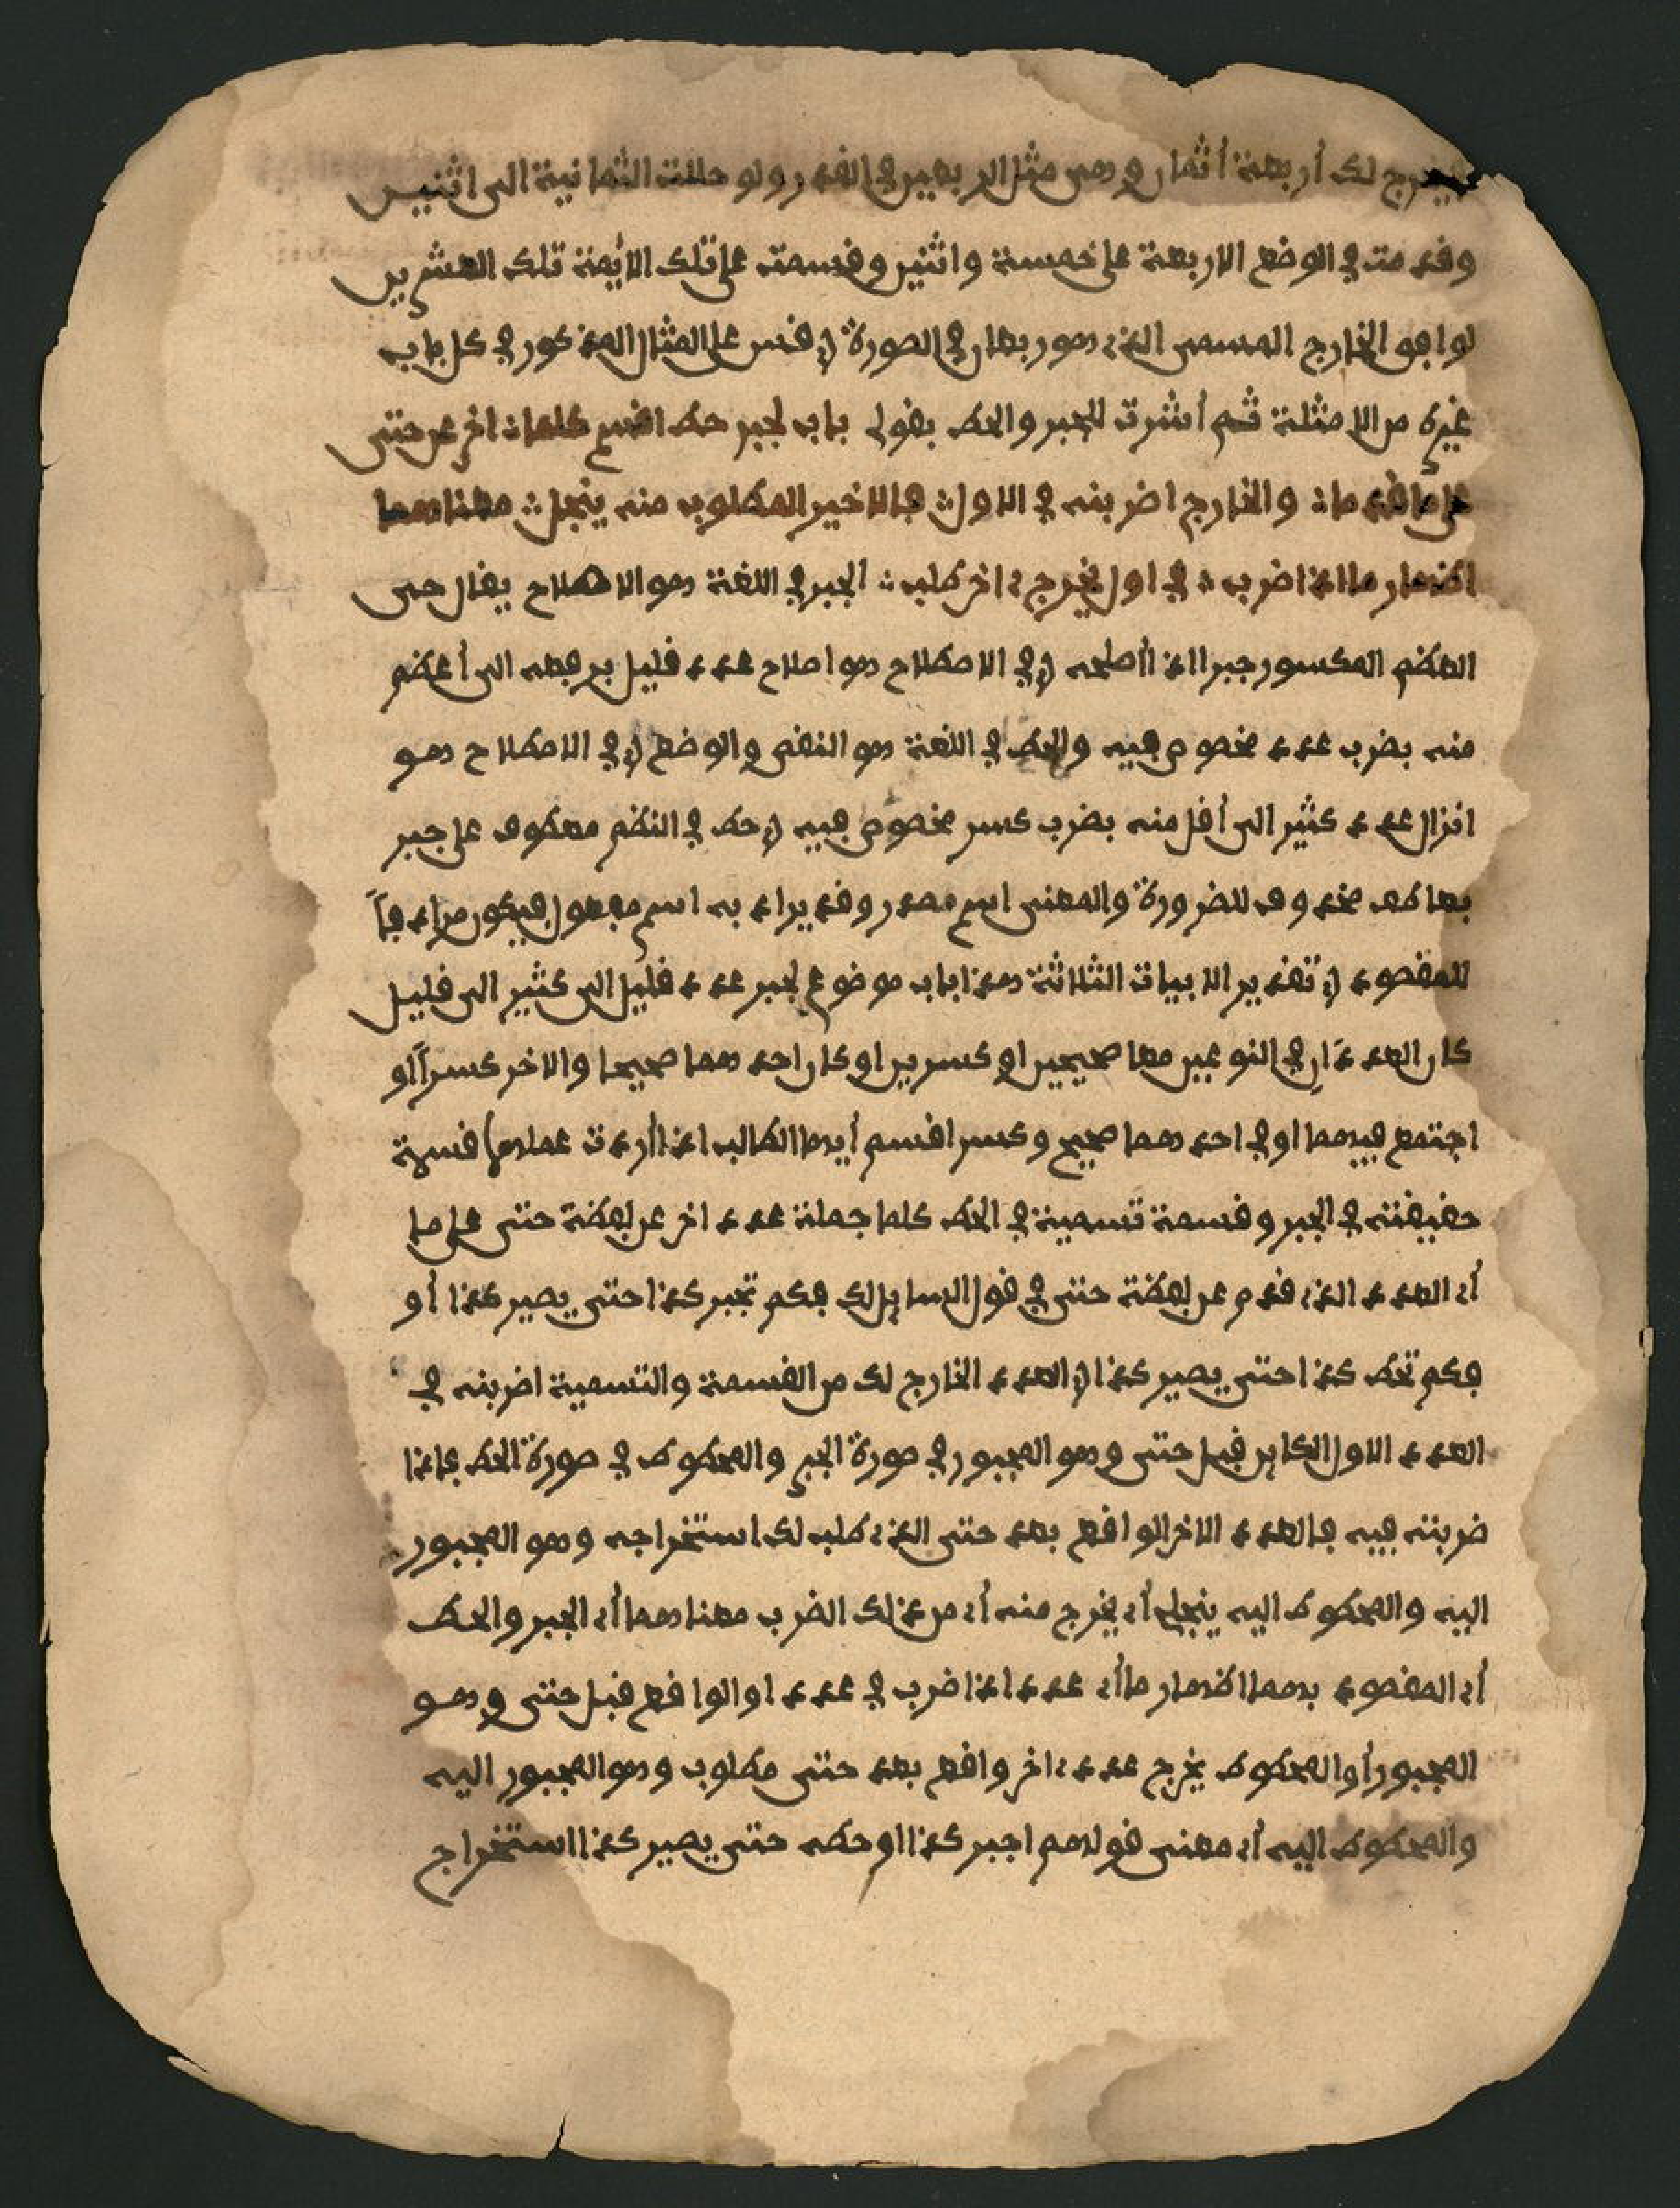 فيخرج لك أربعة أثمان وهي مثل الربعين في القدر ولو حللت الثمانية الى اثنين
وقدمت في الوضع الاربعة على خمسة واثنين وقسمت على تلك الايمة تلك العشرين
لوافق الخارج المسمى الذي هو ربعان في الصورة وقس على المثال المذكور في كل باب
غيره من الامثلة ثم أشرت للجبر والحط بقولي باب لجبر حط اقسم كلما اخر عن حتى
على ما قدما والخارج اضربنه في الاول فالاخير المطلوب منه ينجل معناهما
اظهار ما اذا ضرب في اول يخرج اخر طلب الجبر في اللغة هو الاصلاح يقال جبر
العظم المكسور جبرا اذا أصلحه وفي الاصطلاح هو اصلاح عدد قليل برفعه الى أعظم
منه بضرب عدد مخصوص فيه والحط في اللغة هو النقص والوضع وفي الاصطلاح هو
انزال عدد كثير الى أقل منه بضرب كسر مخصوص فيه وحط في النظم معطوف على جبر
بعاطف محذوف للضرورة والمعنى اسم مصدر وقد يراد به اسم مفعول فيكون مرادفاً
للمقصود وتقدير الابيات الثلاثة هذا باب موضوع لجبر عدد قليل الى كثير الى قليل
كان العددان في النوعين معا صحيحين او كسرين او كان احدهما صحيحا والاخر كسراً او
اجتمع فيهما او في احدهما صحيح وكسر اقسم أيها الطالب اذا أردت عملها قسمة
حقيقته في الجبر وقسمة تسمية في الحط كلما جملة عدد اخر عن لفظة حتى على ما
أي العدد الذي قدم عن لفظة حتى في قول السايل لك فكم تجبر كذا حتى يصير كذا أو
فكم تحط كذا حتى يصير كذا والعدد الخارج لك من القسمة والتسمية اضربنه في
العدد الاول الكاين قبل حتى وهو المجبور في صورة الجبر والمحطوط في صورة الحط فاذا
ضربته فيه فالعدد الاخر الواقع بعد حتى الذي طلب لك استخراجه وهو المجبور
اليه والمحطوط اليه ينجل أي يخرج منه أي من ذلك الضرب معناهما أي الجبر والحط
أي المقصود بهما اظهار ما أي عدد اذا ضرب في عدد اوالواقع قبل حتى وهو
المجبور أو المحطوط يخرج عدد اخر واقع بعد حتى مطلوب وهو المجبور اليه
والمحطوط اليه أي معنى قولهم اجبر كذا او حطه حتى يصير كذا استخراج